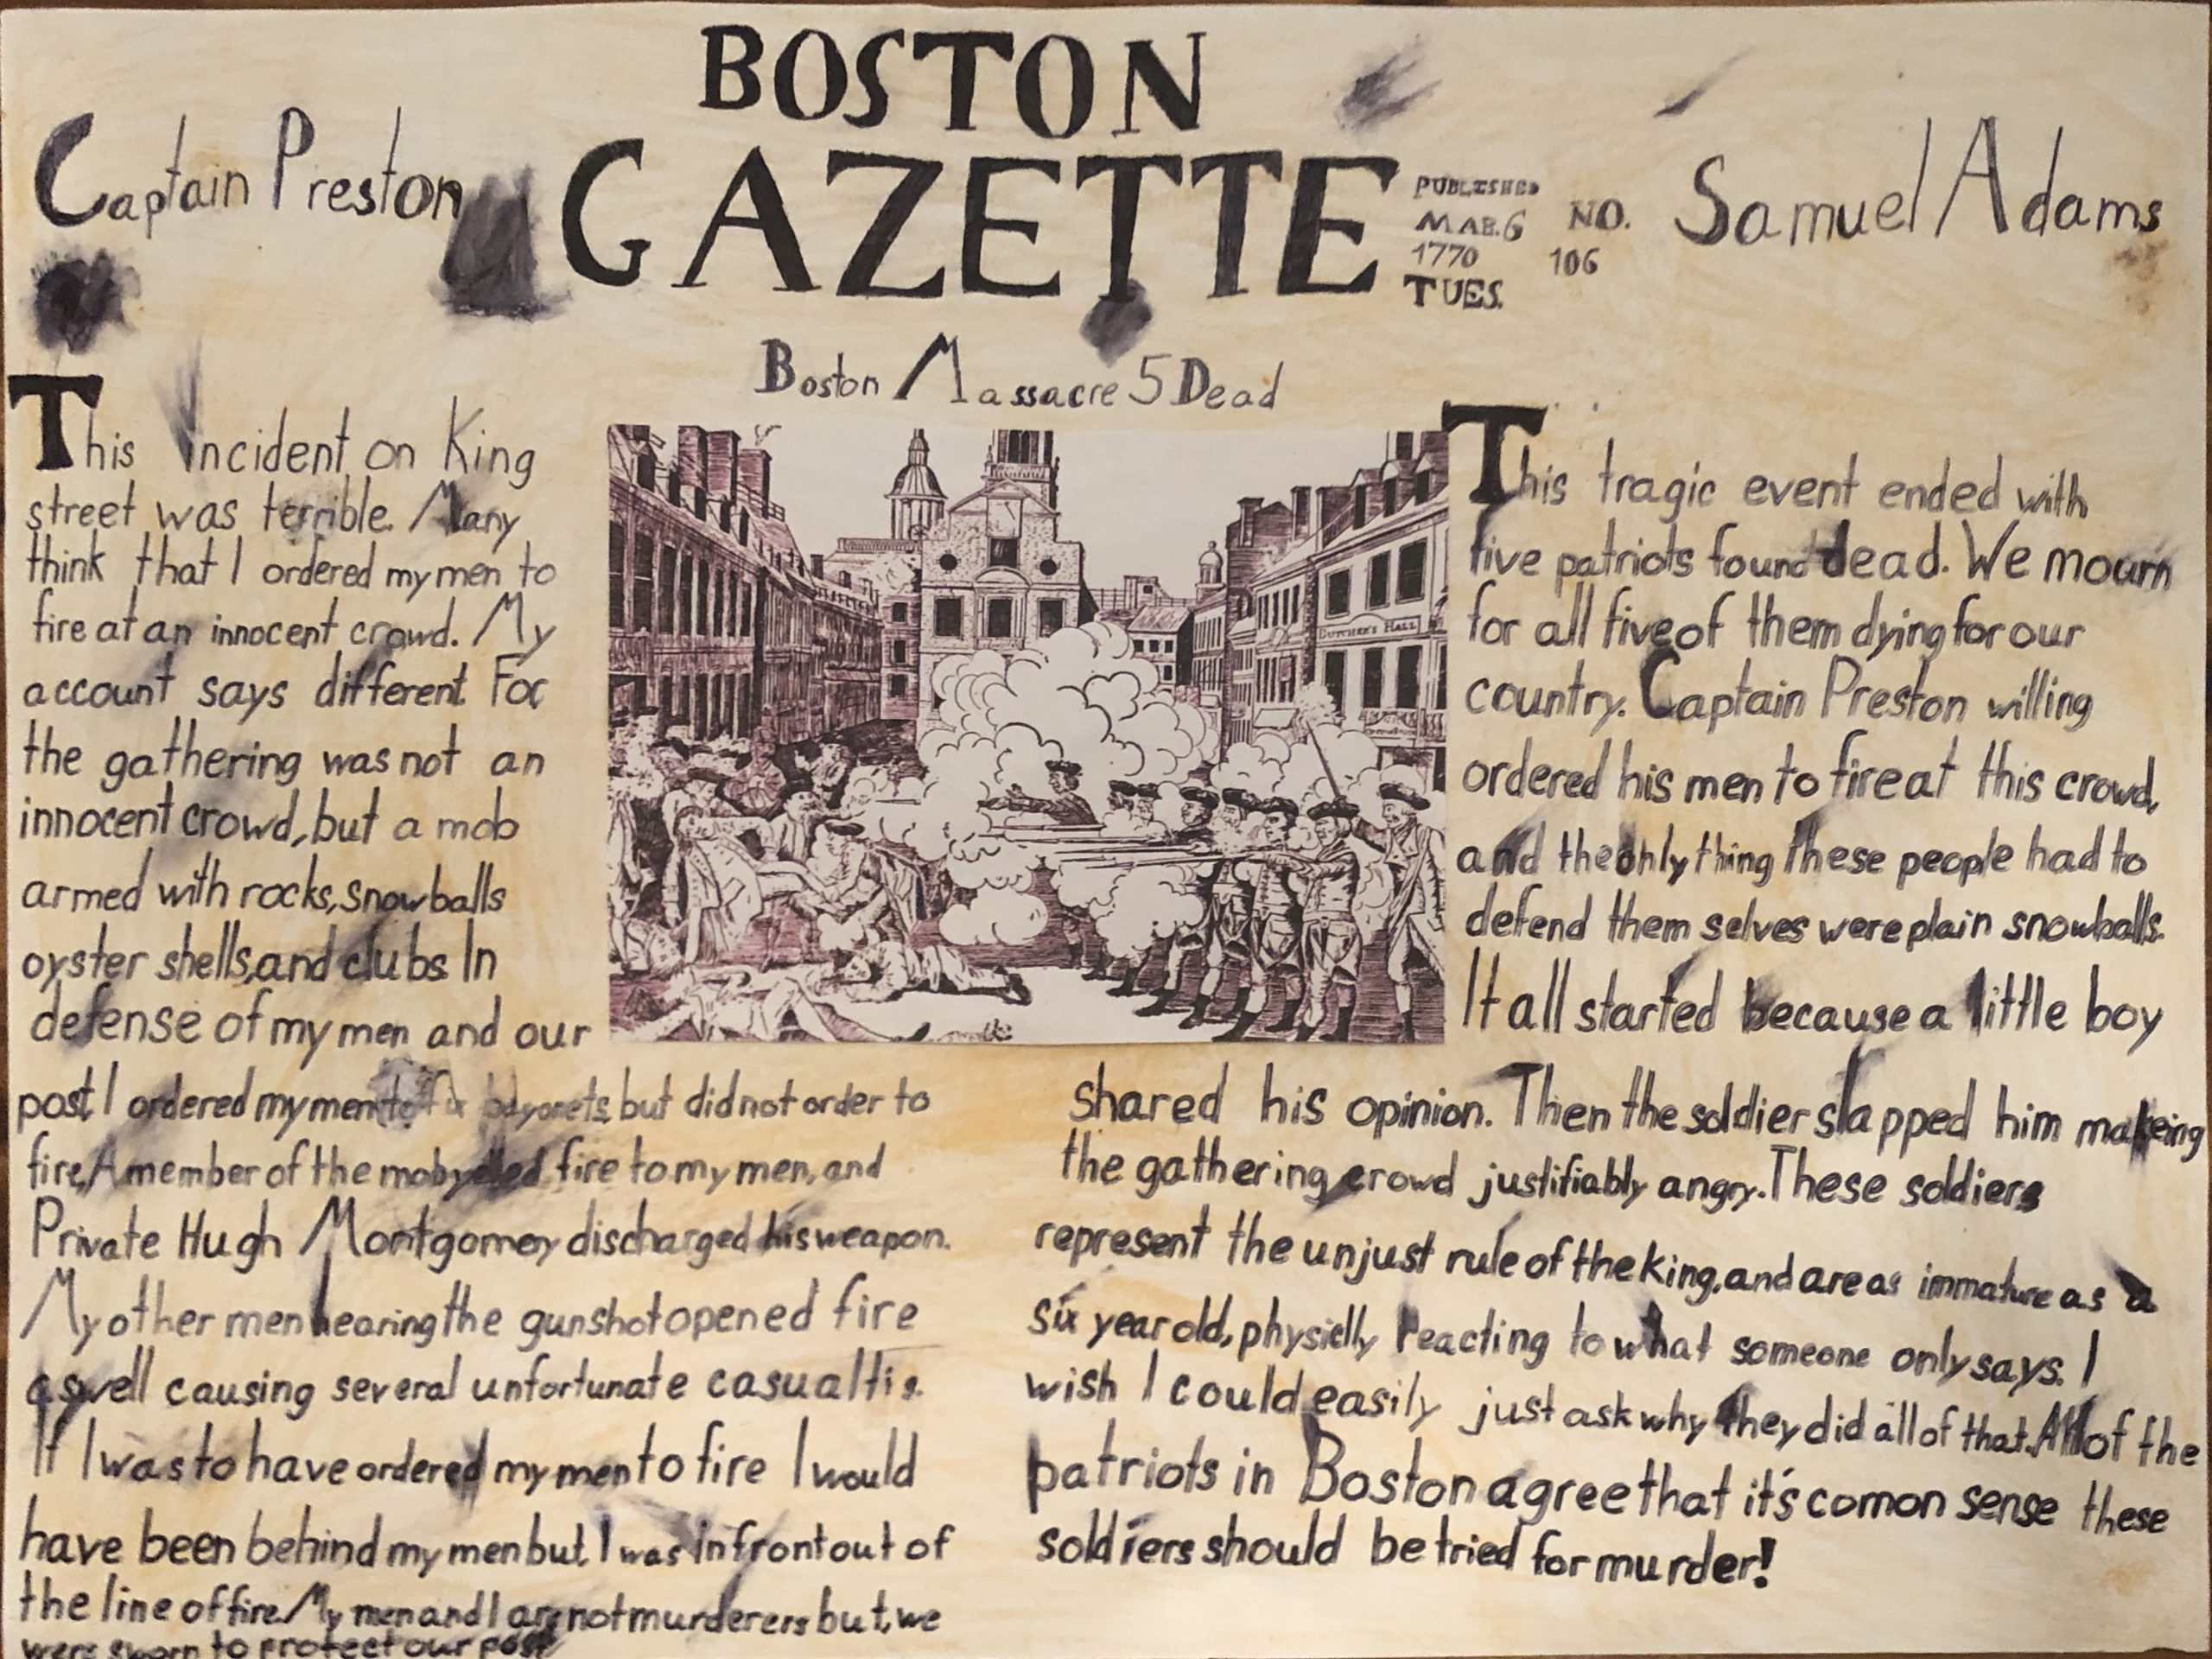 BOSTON
GAZETTE
PUBLISHED
MAR. 6
1770
TUES.
NO.
106
Captain Preston
Samuel Adams
Boston Massacre 5 Dead
This incident on King
street was terrible. Many
think that I ordered my men to
fire at an innocent crowd. My
account says different. For
the gathering was not an
innocent crowd, but a mob
armed with rocks, snowballs
oyster shells, and clubs. In
defense of my men and our
post, I ordered my men to fix bayonets, but did not order to
fire. A member of the mob yelled fire to my men, and
Private Hugh Montgomery discharged his weapon.
My other men hearing the gunshot opened fire
as well causing several unfortunate casualtis.
If I was to have ordered my men to fire I would
have been behind my men but, I was in front out of
the line of fire. My men and I are not murderers but, we
were sworn to protect our post
BUTCHER'S HALL
This tragic event ended with
five patriots found dead. We mourn
for all five of them dying for our
country. Captain Preston willing
ordered his men to fire at this crowd,
and the only thing these people had to
defend them selves were plain snowballs.
It all started because a little boy
shared his opinion. Then the soldier slapped him makeing
the gathering crowd justifiably angry. These soldiers
represent the unjust rule of the king, and are as immature as a
six year old, physiclly reacting to what someone only says. I
wish I could easily just ask why they did all of that. All of the
patriots in Boston agree that it's comon sense these
soldiers should be tried for murder!